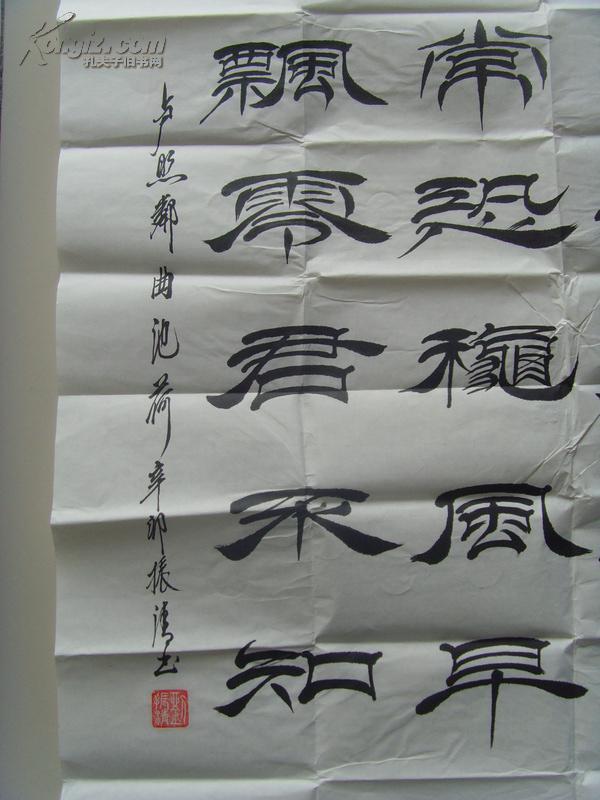 常恐龝風早
飄零君不知
卢照鄰曲池荷辛卯振清书
Kongfz.com
孔夫子旧书网